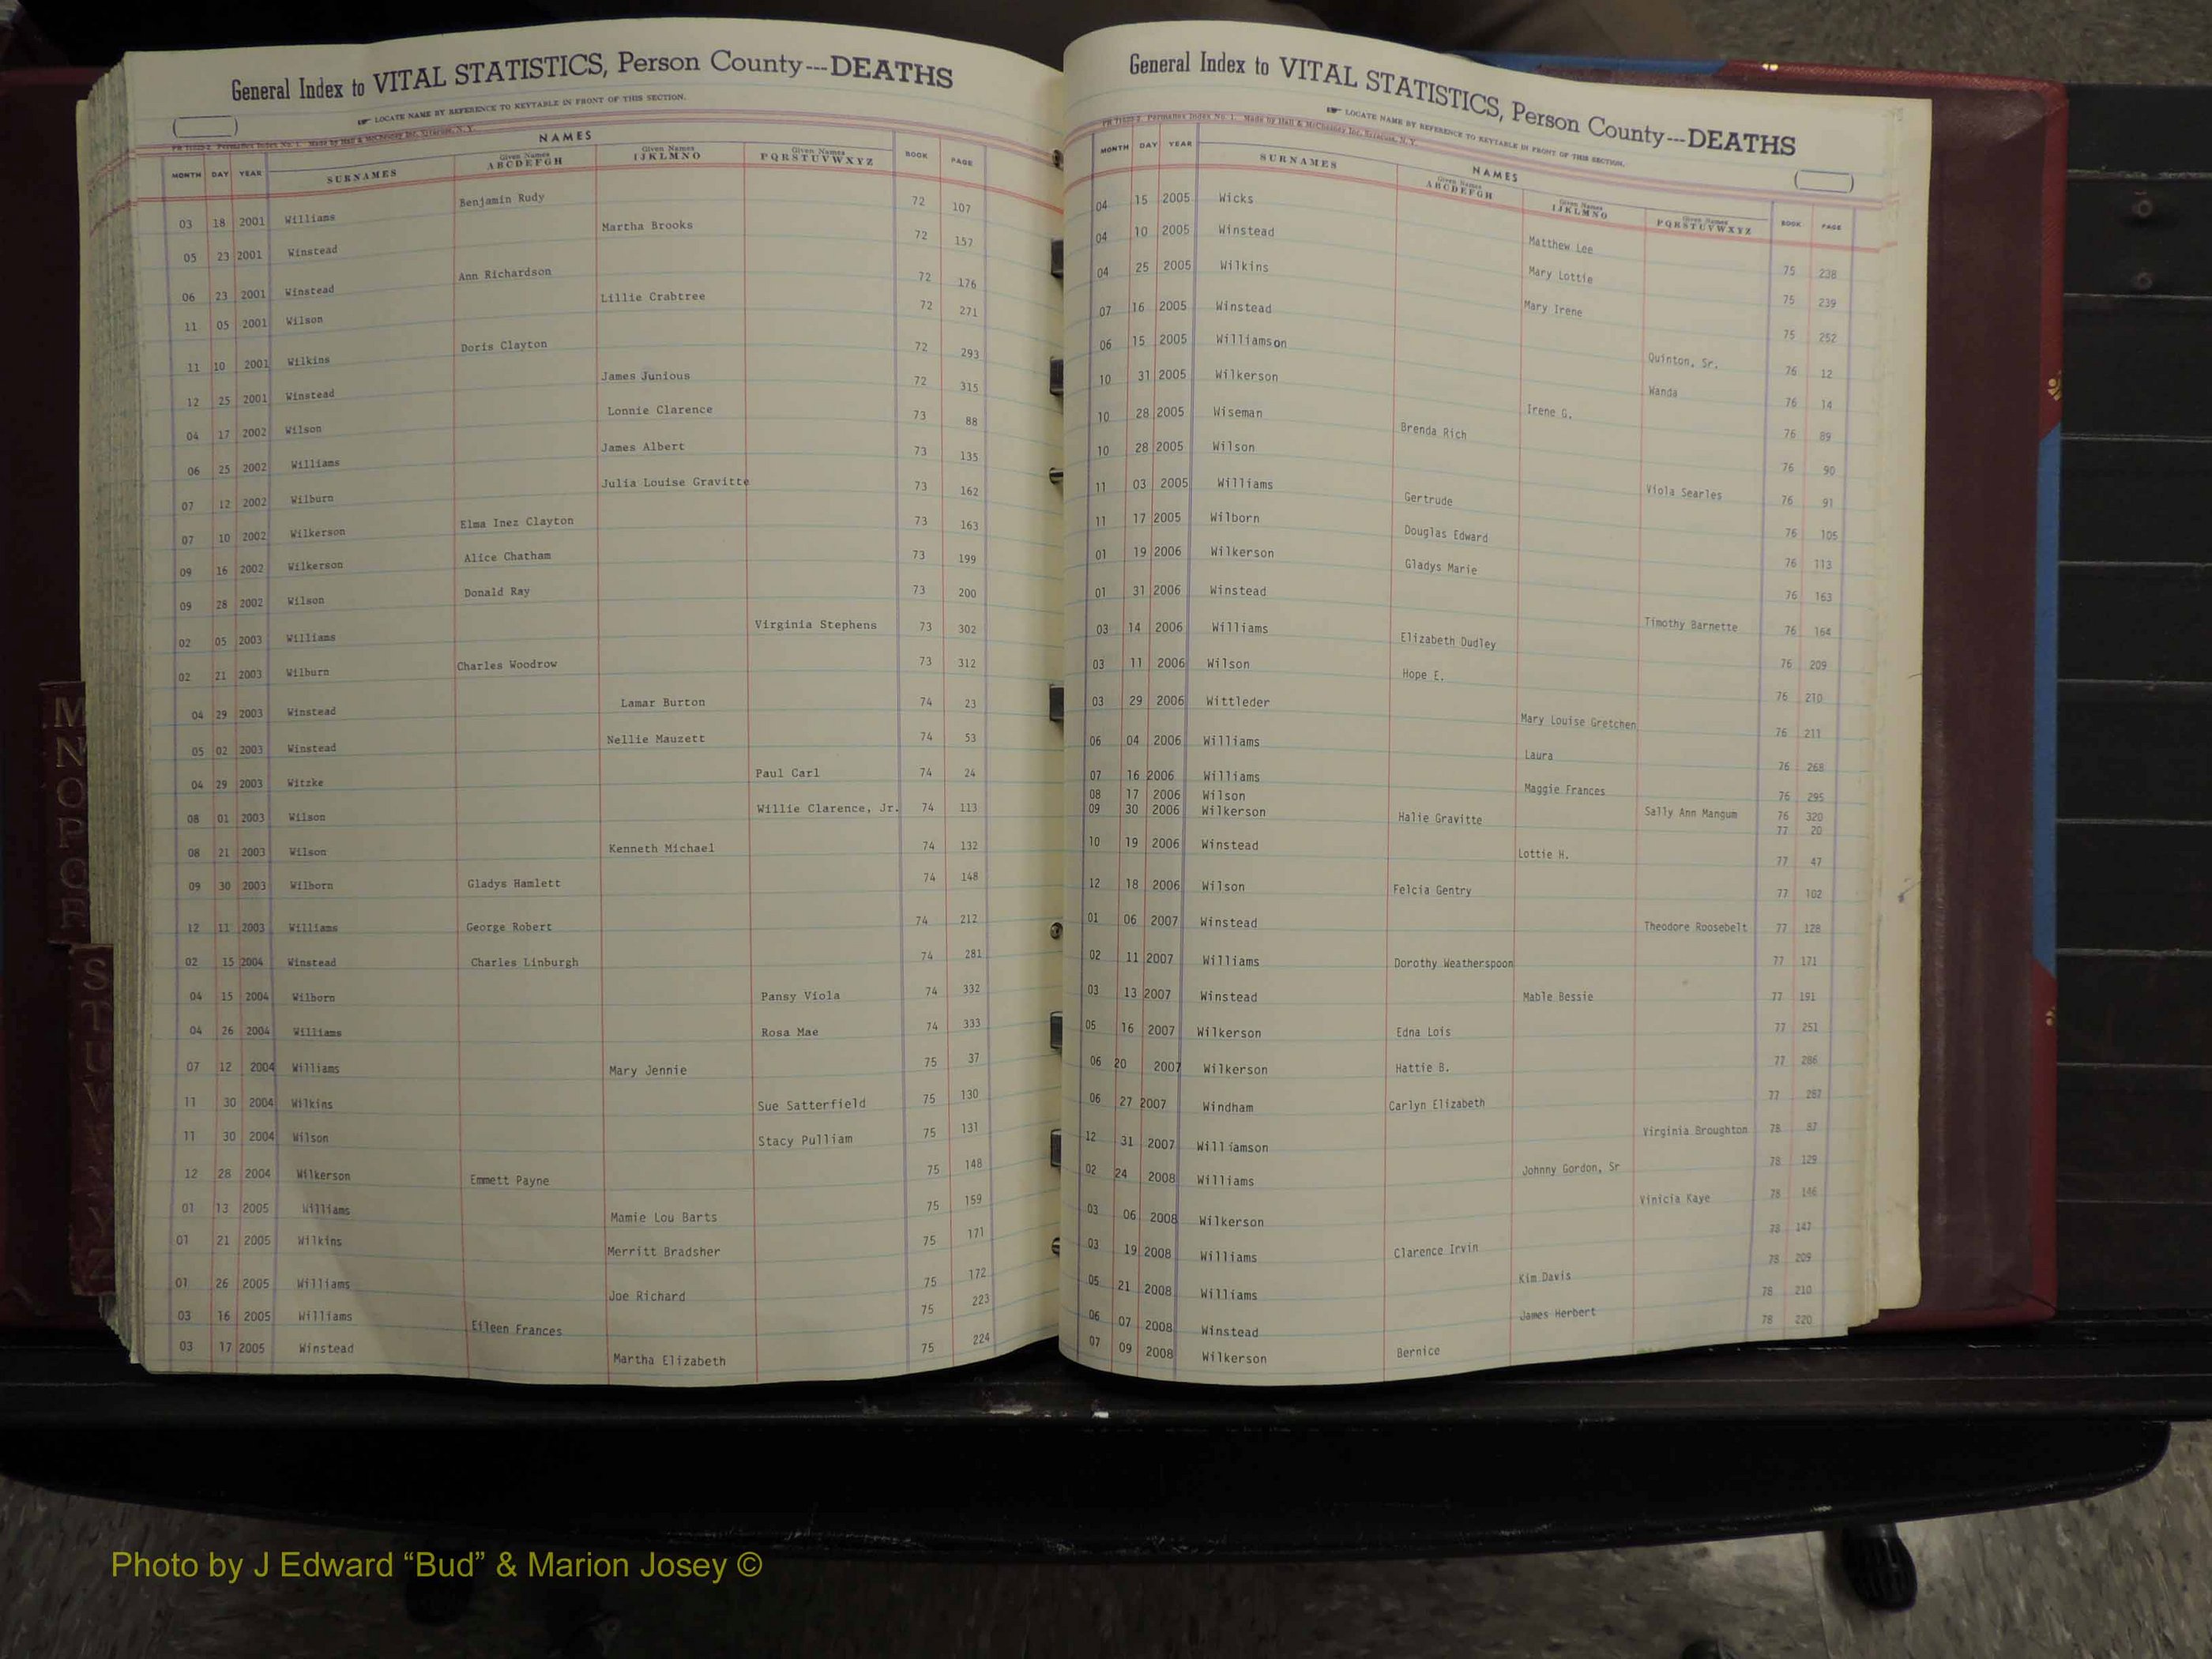 General Index to VITAL STATISTICS, Person County---DEATHS
LOCATE NAME BY REFERENCE TO KEYTABLE IN FRONT OF THIS SECTION.
NAMES
MONTH DAY YEAR SURNAMES Given Names ABCDEFGH Given Names IJKLMNO Given Names PQRSTUVWXYZ BOOK PAGE
03 18 2001 Williams Benjamin Rudy 72 107
05 23 2001 Winstead Martha Brooks 72 157
06 23 2001 Winstead Ann Richardson 72 176
11 05 2001 Wilson Lillie Crabtree 72 271
11 10 2001 Wilkins Doris Clayton 72 293
12 25 2001 Winstead James Junious 72 315
04 17 2002 Wilson Lonnie Clarence 73 88
06 25 2002 Williams James Albert 73 135
07 12 2002 Wilburn Julia Louise Gravitte 73 162
07 10 2002 Wilkerson Elma Inez Clayton 73 163
09 16 2002 Wilkerson Alice Chatham 73 199
09 28 2002 Wilson Donald Ray 73 200
02 05 2003 Williams Virginia Stephens 73 302
02 21 2003 Wilburn Charles Woodrow 73 312
04 29 2003 Winstead Lamar Burton 74 23
05 02 2003 Winstead Nellie Mauzett 74 53
04 29 2003 Witzke Paul Carl 74 24
08 01 2003 Wilson Willie Clarence, Jr. 74 113
08 21 2003 Wilson Kenneth Michael 74 132
09 30 2003 Wilborn Gladys Hamlett 74 148
12 11 2003 Williams George Robert 74 212
02 15 2004 Winstead Charles Linburgh 74 281
04 15 2004 Wilborn Pansy Viola 74 332
04 26 2004 Williams Rosa Mae 74 333
07 12 2004 Williams Mary Jennie 75 37
11 30 2004 Wilkins Sue Satterfield 75 130
11 30 2004 Wilson Stacy Pulliam 75 131
12 28 2004 Wilkerson Emmett Payne 75 148
01 13 2005 Williams Mamie Lou Barts 75 159
01 21 2005 Wilkins Merritt Bradsher 75 171
01 26 2005 Williams Joe Richard 75 172
03 16 2005 Williams Eileen Frances 75 223
03 17 2005 Winstead Martha Elizabeth 75 224
General Index to VITAL STATISTICS, Person County---DEATHS
LOCATE NAME BY REFERENCE TO KEYTABLE IN FRONT OF THIS SECTION.
NAMES
MONTH DAY YEAR SURNAMES Given Names ABCDEFGH Given Names IJKLMNO Given Names PQRSTUVWXYZ BOOK PAGE
04 15 2005 Wicks Matthew Lee 75 238
04 10 2005 Winstead Mary Lottie 75 239
04 25 2005 Wilkins Mary Irene 75 252
07 16 2005 Winstead Quinton, Sr. 76 12
06 15 2005 Williamson Wanda 76 14
10 31 2005 Wilkerson Irene G. 76 89
10 28 2005 Wiseman Brenda Rich 76 90
10 28 2005 Wilson Viola Searles 76 91
11 03 2005 Williams Gertrude 76 105
11 17 2005 Wilborn Douglas Edward 76 113
01 19 2006 Wilkerson Gladys Marie 76 163
01 31 2006 Winstead Timothy Barnette 76 164
03 14 2006 Williams Elizabeth Dudley 76 209
03 11 2006 Wilson Hope E. 76 210
03 29 2006 Wittleder Mary Louise Gretchen 76 211
06 04 2006 Williams Laura 76 268
07 16 2006 Williams Maggie Frances 76 295
08 17 2006 Wilson Sally Ann Mangum 76 320
09 30 2006 Wilkerson Halie Gravitte 77 20
10 19 2006 Winstead Lottie H. 77 47
12 18 2006 Wilson Felcia Gentry 77 102
01 06 2007 Winstead Theodore Roosebelt 77 128
02 11 2007 Williams Dorothy Weatherspoon 77 171
03 13 2007 Winstead Mable Bessie 77 191
05 16 2007 Wilkerson Edna Lois 77 251
06 20 2007 Wilkerson Hattie B. 77 286
06 27 2007 Windham Carlyn Elizabeth 77 287
12 31 2007 Williamson Virginia Broughton 78 87
02 24 2008 Williams Johnny Gordon, Sr 78 129
03 06 2008 Wilkerson Vinicia Kaye 78 146
03 19 2008 Williams Clarence Irvin 78 147
05 21 2008 Williams Kim Davis 78 209
06 07 2008 Winstead James Herbert 78 210
07 09 2008 Wilkerson Bernice 78 220
Photo by J Edward “Bud” & Marion Josey ©